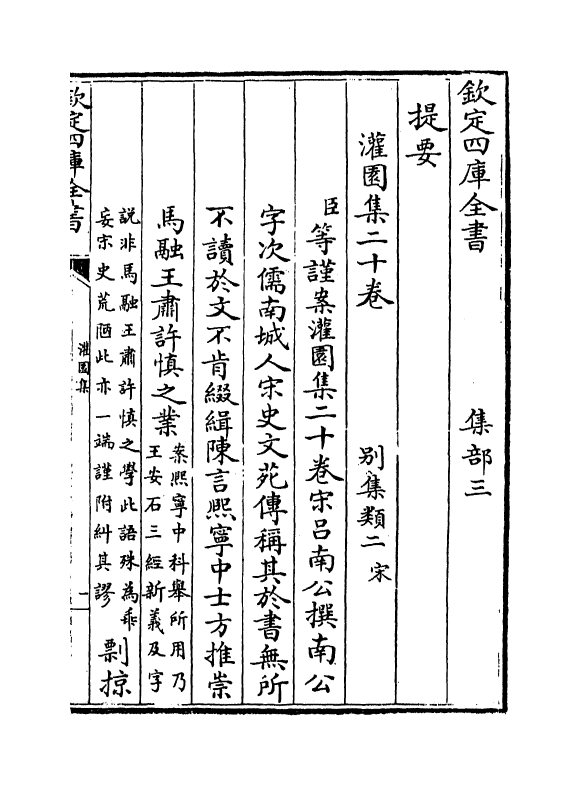 欽定四庫全書　集部三
提要
灌園集二十卷　別集類二宋
臣等謹案灌園集二十卷宋吕南公撰南公
字次儒南城人宋史文苑傳稱其於書無所
不讀於文不肯綴緝陳言熙寧中士方推崇
馬融王肅許慎之業案熙寧中科舉所用乃
王安石三經新義及字
說非馬融王肅許慎之學此語殊為乖
妄宋史荒陋此亦一端謹附糾其謬剽掠
欽定四庫全書　灌園集　一